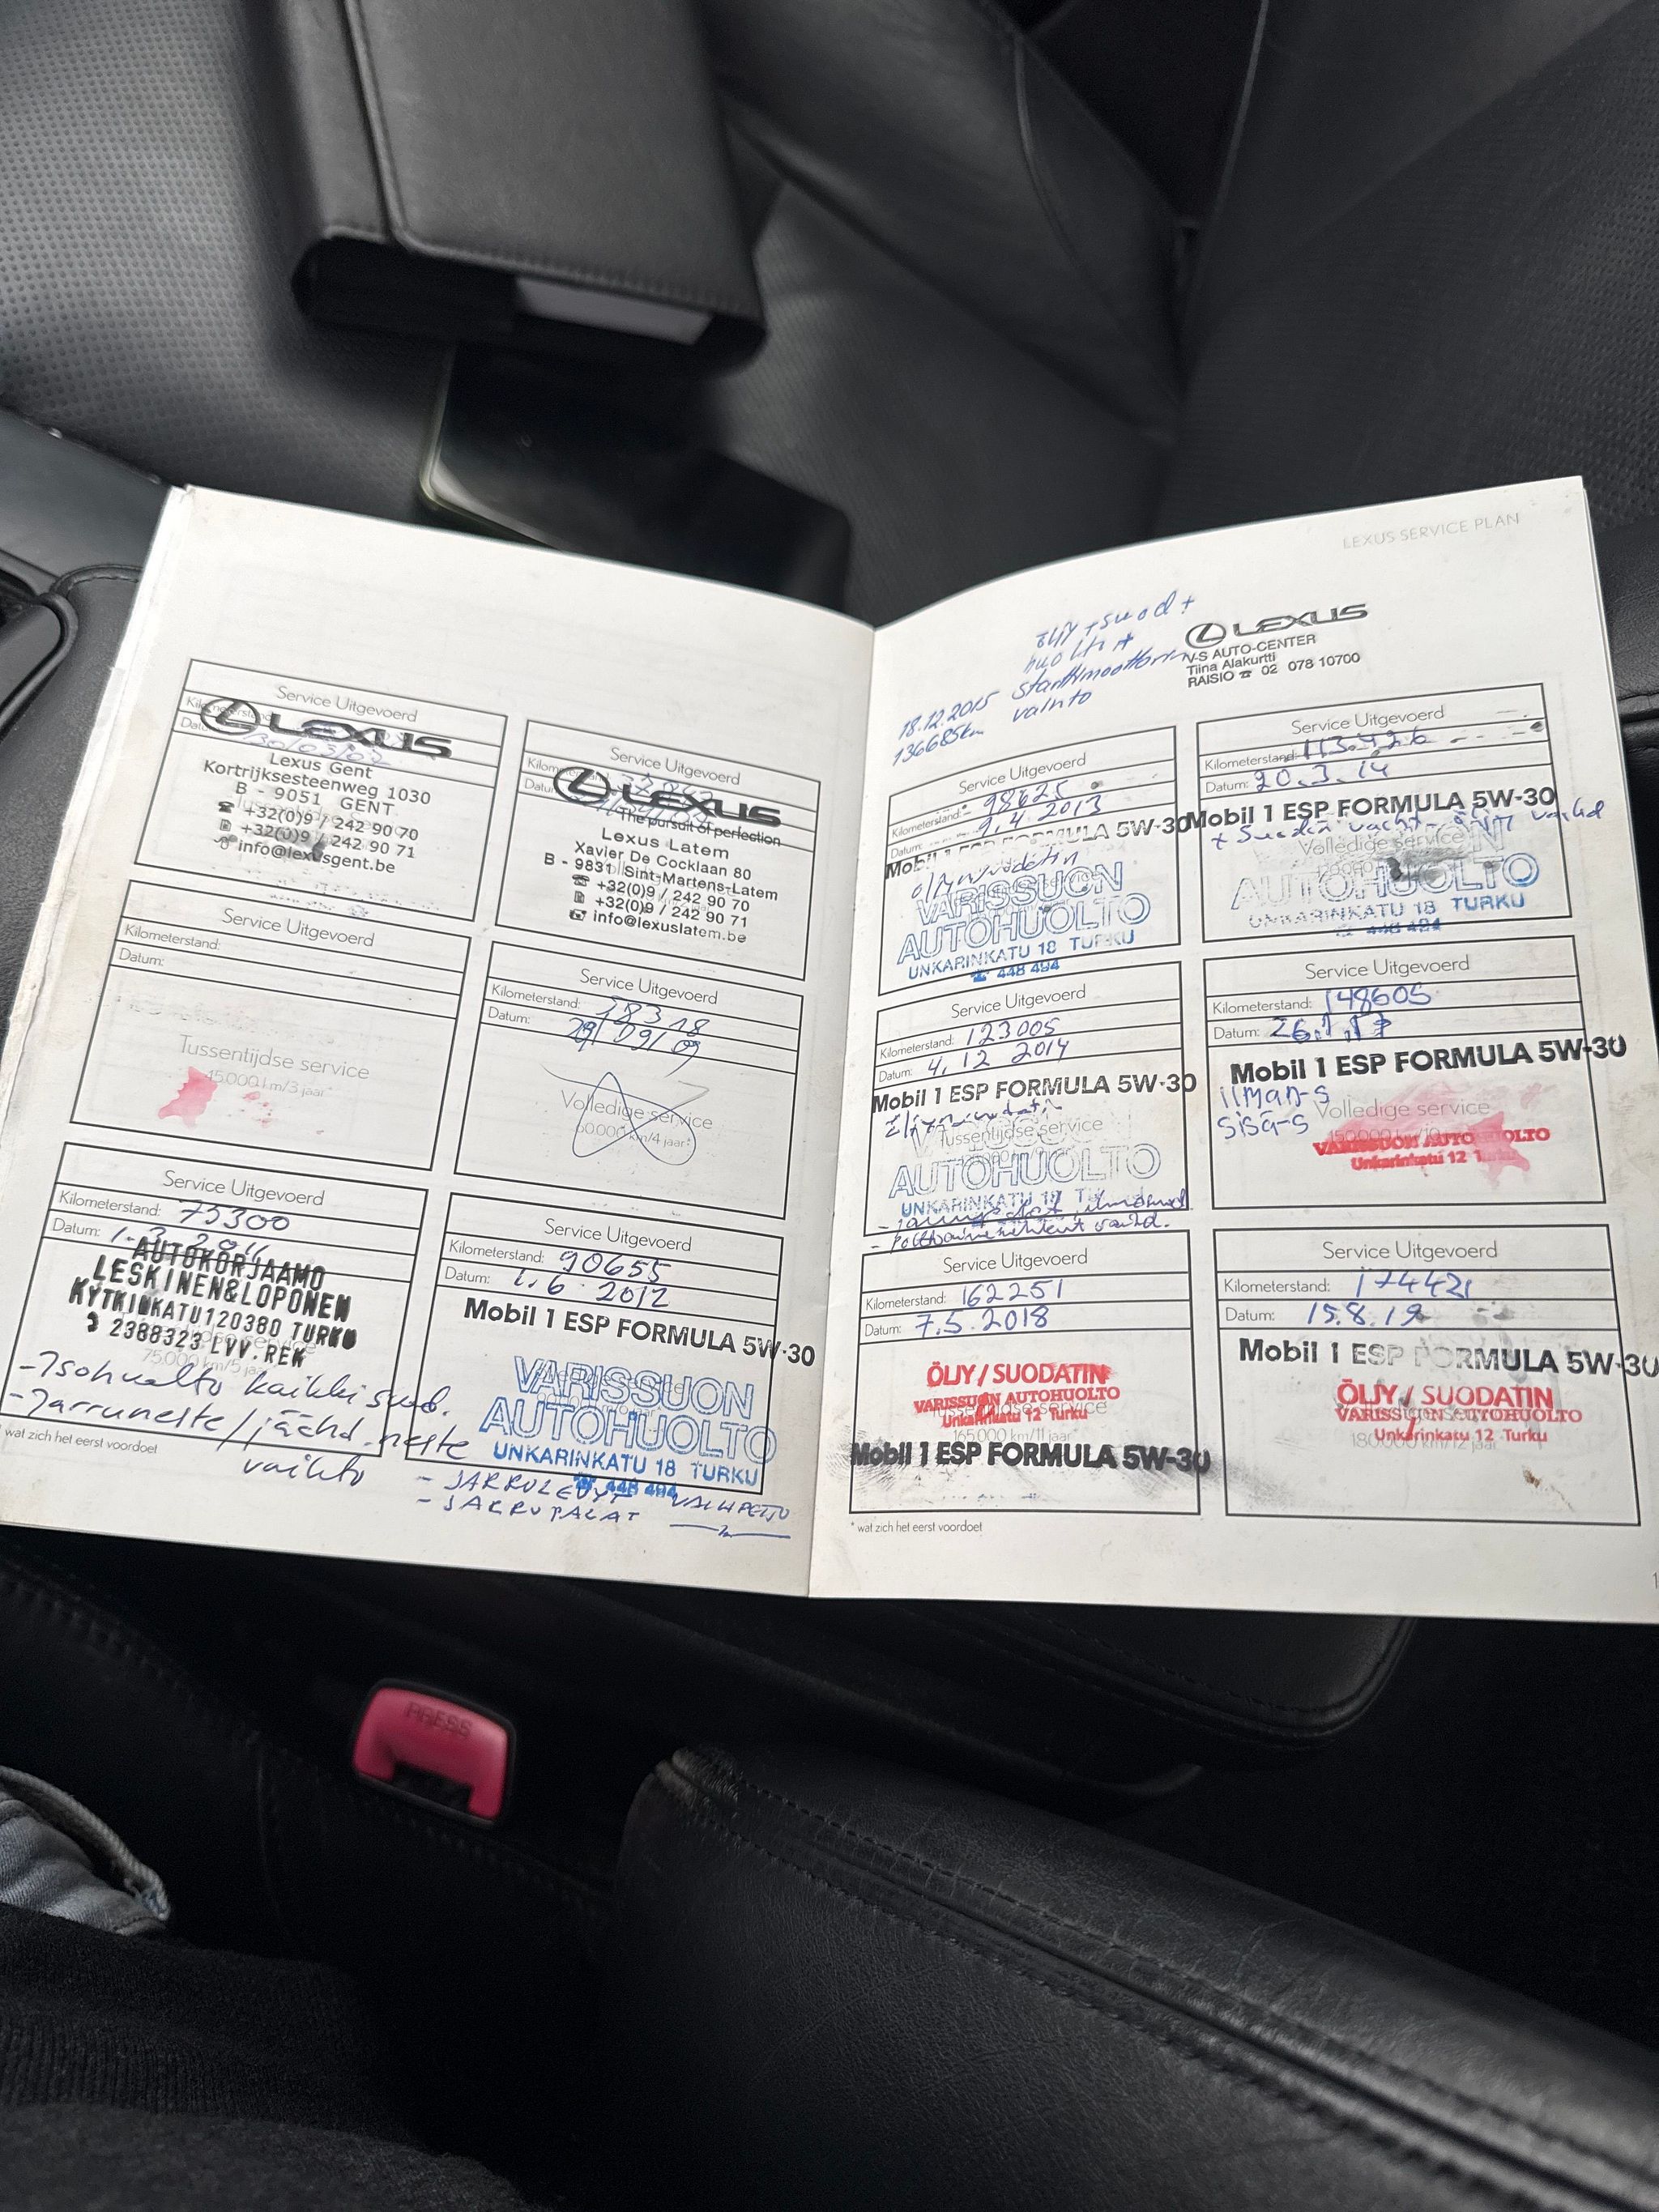 Service Uitgevoerd
LEXUS
30/03/07
Lexus Gent
Kortrijksesteenweg 1030
B - 9051 GENT
+32(0)9 / 242 90 70
+32(0)9 / 242 90 71
info@lexusgent.be
Service Uitgevoerd
LEXUS
The pursuit of perfection
Lexus Latem
Xavier De Cocklaan 80
B - 9831 Sint-Martens-Latem
+32(0)9 / 242 90 70
+32(0)9 / 242 90 71
info@lexuslatem.be
Service Uitgevoerd
Kilometerstand:
Datum:
Tussentijdse service
45.000 km/3 jaar*
Service Uitgevoerd
Kilometerstand: 58318
Datum: 29/09/09
Volledige service
60.000 km/4 jaar*
Service Uitgevoerd
Kilometerstand: 75300
Datum: 1.3.2011
AUTOKORJAAMO
LESKINEN&LOPONEN
KYTKINKATU120380 TURKU
2388323 LVV.REK
75.000 km/5 jaar*
-Isohuolto kaikki suod.
-Jarruneste/jäähd.neste
vaihto
wat zich het eerst voordoet
Service Uitgevoerd
Kilometerstand: 90655
Datum: 1.6.2012
Mobil 1 ESP FORMULA 5W-30
VARISSUON
AUTOHUOLTO
UNKARINKATU 18 TURKU
448 494
- JARRULEVYT
- JARRUPALAT
LEXUS SERVICE PLAN
öljy + suod +
huolto +
starttimoottorin
vaihto
18.12.2015
136685km
LEXUS
V-S AUTO-CENTER
Tiina Alakurtti
RAISIO 02 078 10700
Service Uitgevoerd
Kilometerstand: 98625
Datum: 9.4.2013
Mobil 1 ESP FORMULA 5W-30
VARISSUON
AUTOHUOLTO
UNKARINKATU 18 TURKU
448 494
Service Uitgevoerd
Kilometerstand: 113.426
Datum: 20.3.14
Mobil 1 ESP FORMULA 5W-30
Volledige service
AUTOHUOLTO
UNKARINKATU 18 TURKU
448 494
Service Uitgevoerd
Kilometerstand: 123005
Datum: 4.12 2014
Mobil 1 ESP FORMULA 5W-30
Tussentijdse service
AUTOHUOLTO
UNKARINKATU 18
Service Uitgevoerd
Kilometerstand: 148605
Datum: 26.1.17
Mobil 1 ESP FORMULA 5W-30
ilman-s
sisä-s
Volledige service
VARISSUON AUTOHUOLTO
Unkarinkatu 12 Turku
Service Uitgevoerd
Kilometerstand: 162251
Datum: 7.5.2018
ÖLJY/SUODATIN
VARISSUON AUTOHUOLTO
Unkarinkatu 12 Turku
165.000 km/11 jaar*
Mobil 1 ESP FORMULA 5W-30
* wat zich het eerst voordoet
Service Uitgevoerd
Kilometerstand: 174421
Datum: 15.8.19
Mobil 1 ESP FORMULA 5W-30
ÖLJY / SUODATIN
VARISSUON AUTOHUOLTO
Unkarinkatu 12 Turku
180.000 km/12 jaar*
PRESS